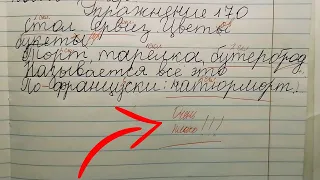 Упражнение 170
Стол арвиз Цветы
букеты
Торт, тарелка, бутерброд
Называется все это
По-французски: натюрморт.